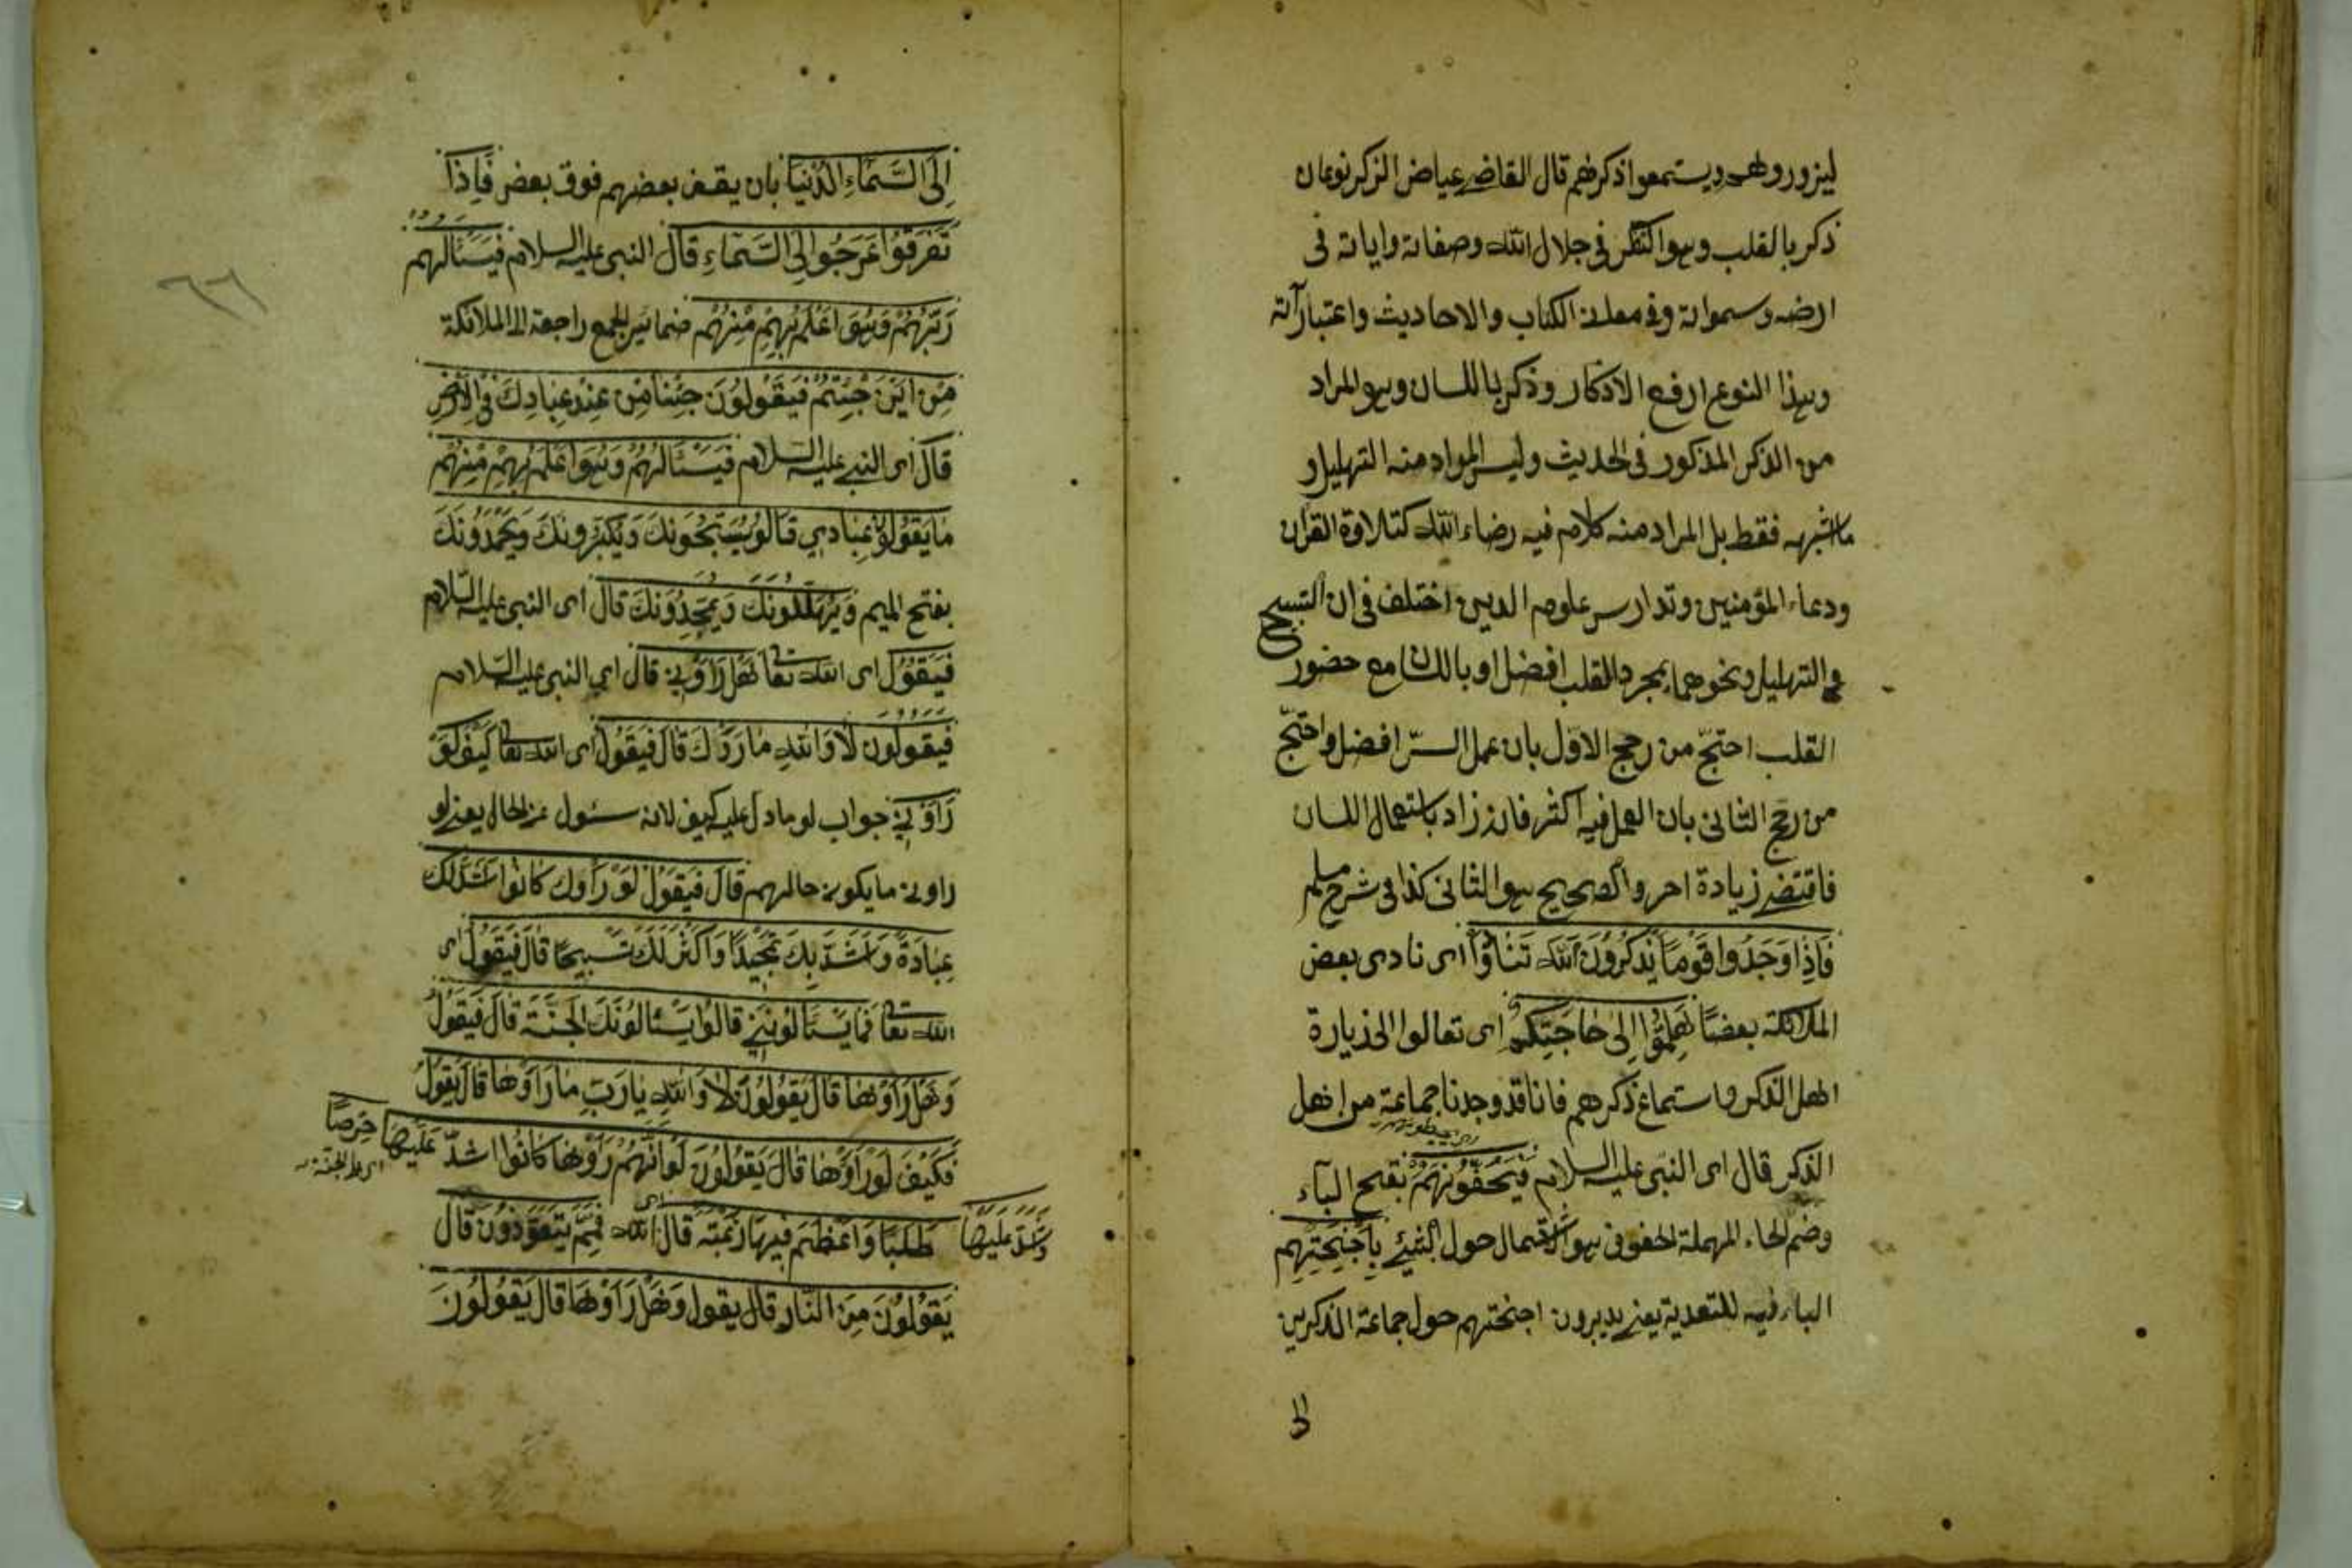 ليزوروهم ويستمعوا ذكرهم قال القاضي عياض الذكر نوعان
ذكر بالقلب وهو التفكر في جلال الله وصفاته واياته في
ارضه وسمواته وفي معاني الكتاب والاحاديث واعتباراته
وهذا النوع ارفع الاذكار وذكر باللسان وهو المراد
من الذكر المذكور في الحديث وليس المراد منه التهليل و
ما اشبهه فقط بل المراد منه كلام فيه رضاء الله كتلاوة القران
ودعاء المؤمنين وتدارس علوم الدين اختلف في ان التسبيح
والتهليل ونحوهما بمجرد القلب افضل او باللسان مع حضور
القلب احتجّ من رجح الاوّل بان عمل السرّ افضل واحتجّ
من رجح الثاني بان العمل فيه اكثر فان زاد باستعمال اللسان
فاقتضى زيادة اجر والصحيح هو الثاني كذا في شرح مسلم
فَاِذَا وَجَدُوا قَوْمًا يَذْكُرُونَ اللهَ تَنَادَوْا اى نادى بعض
الملائكة بعضًا هَلُمُّوا اِلَى حَاجَتِكُمْ اى تعالوا الى زيارة
اهل الذكر واستماع ذكرهم فانا قد وجدنا جماعة من اهل
الذكر قال اى النبى عليه السلام فَيَحُفُّونَهُمْ بفتح الياء
وضم الحاء المهملة الحفوف هو الاشتمال حول الشيئ بِاَجْنِحَتِهِم
الباء فيه للتعدية يعنى يديرون اجنحتهم حول جماعة الذاكرين
الى
اِلَى السَّمَاءِ الدُّنْيَا بان يقف بعضهم فوق بعض فَاِذَا
تَفَرَّقُوا عَرَجُوا اِلَى السَّمَاءِ قال النبى عليه السلام فَيَسْئَالُهُم
رَبُّهُمْ وَهُوَ اَعْلَمُ بِهِمْ مِنْهُمْ ضمائير الجمع راجعة الى الملائكة
مِنْ اَيْنَ جِئْتُمْ فَيَقُولُونَ جِئْنَا مِنْ عِنْدِ عِبَادِكَ فِي الْاَرْضِ
قال اى النبى عليه السلام فَيَسْئَالُهُمْ وَهُوَ اَعْلَمُ بِهِمْ مِنْهُمْ
مَا يَقُولُ عِبَادِي قَالُو يُسَبِّحُونَكَ وَيُكَبِّرُونَكَ وَيَحْمَدُونَكَ
بفتح الميم وَيُهَلِّلُونَكَ وَيُمَجِّدُونَكَ قال اى النبى عليه السّلام
فَيَقُولُ اى الله تعالى هَلْ رَاَوْنِي قال اي النبى عليه السّلام
فَيَقُولُونَ لَا وَاللهِ مَا رَاَوْكَ قَالَ فَيَقُولُ اى الله تعالى كَيْفَ لَوْ
رَاَوْنِي جواب لو ما دل عليه كيف لانه سئول عن الحال يعنى لو
راونى ما يكون حالهم قَالَ فَيَقُولُ لَوْ رَاَوْكَ كَانُوا اَشَدَّ لَكَ
عِبَادَةً وَاَشَدَّ لَكَ تَمْجِيدًا وَاَكْثَرَ لَكَ تَسْبِيحًا قَالَ فَيَقُولُ اى
الله تعالى فَمَا يَسْئَالُونَنِي قَالُوا يَسْئَالُونَكَ الْجَنَّةَ قَالَ فَيَقُولُ
وَهَلْ رَاَوْهَا قَالَ يَقُولُونَ لَا وَاللهِ يَارَبِّ مَا رَاَوْهَا قَالَ يَقُولُ
فَكَيْفَ لَوْ رَاَوْهَا قَالَ يَقُولُونَ لَوْ اَنَّهُمْ رَاَوْهَا كَانُوا اَشَدَّ عَلَيْهَا حِرْصًا
اى على الجنّة
وَاَشَدَّ عَلَيْهَا طَلَبًا وَاَعْظَمَ فِيهَا رَغْبَةً قَالَ اى الله فَمِمَّ يَتَعَوَّذُونَ قَالَ
يَقُولُونَ مِنَ النَّارِ قَالَ يَقُولُ وَهَلْ رَاَوْهَا قَالَ يَقُولُونَ